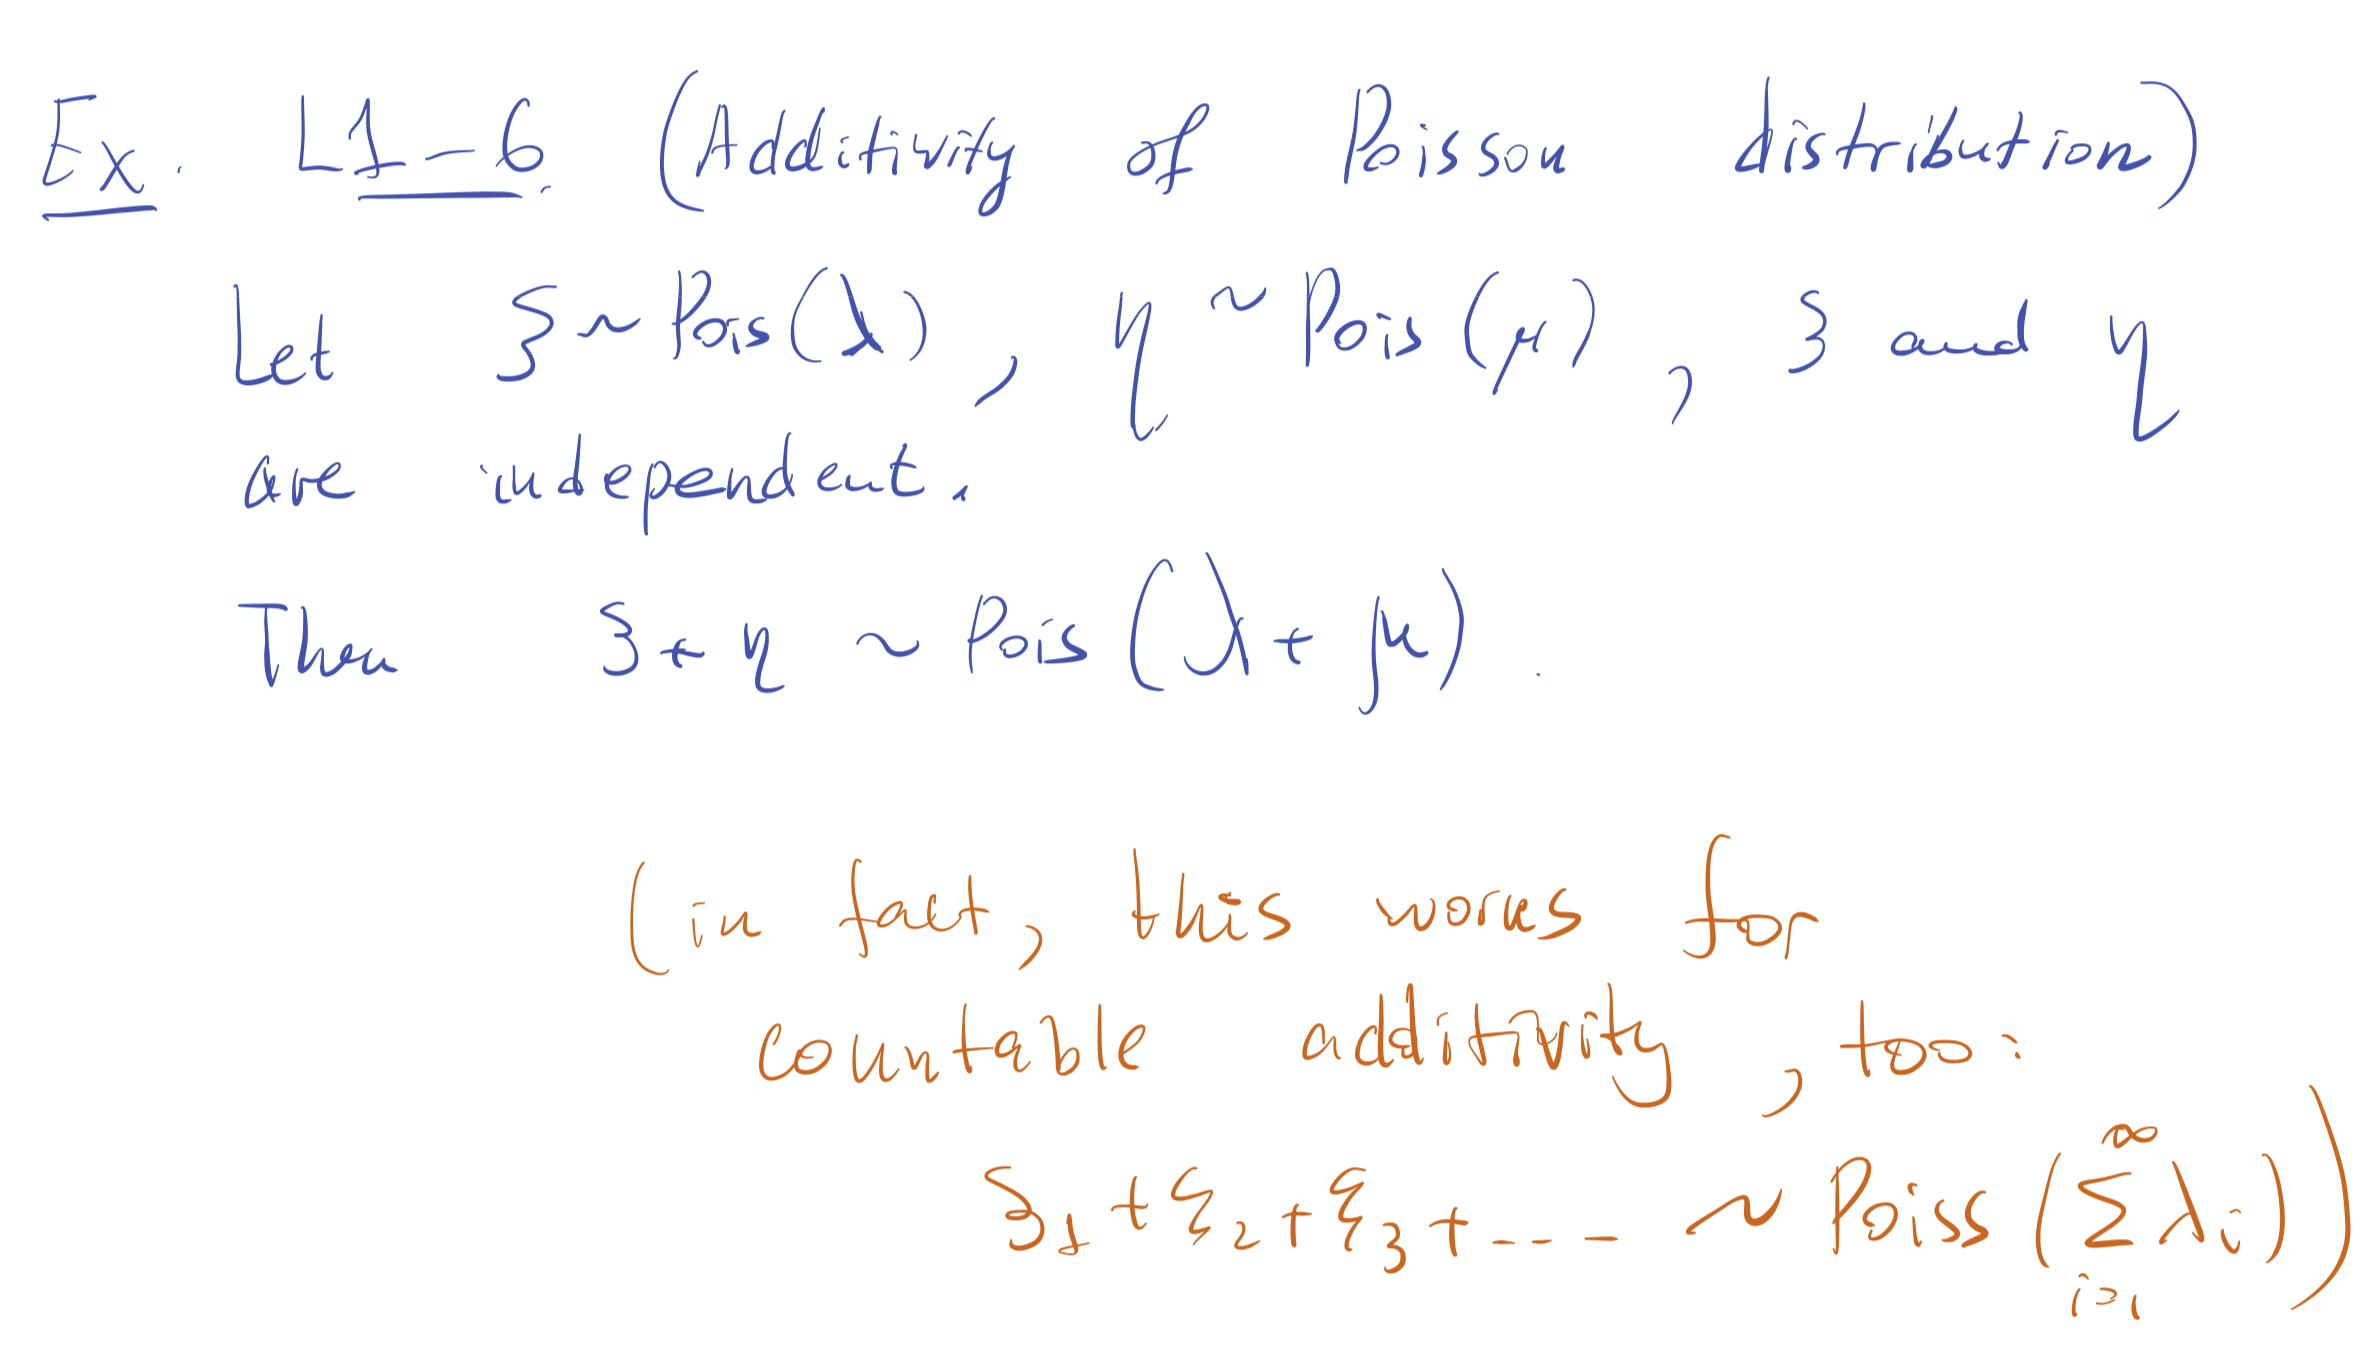 Ex. L1-6. (Additivity of Poisson distribution)
Let ξ ~ Pois(λ), η ~ Pois(μ), ξ and η
are independent.
Then ξ + η ~ Pois(λ + μ).
(in fact, this works for
countable additivity, too:
ξ₁ + ξ₂ + ξ₃ + .... ~ Poiss(∑_{i=1}^{∞} λ_i))